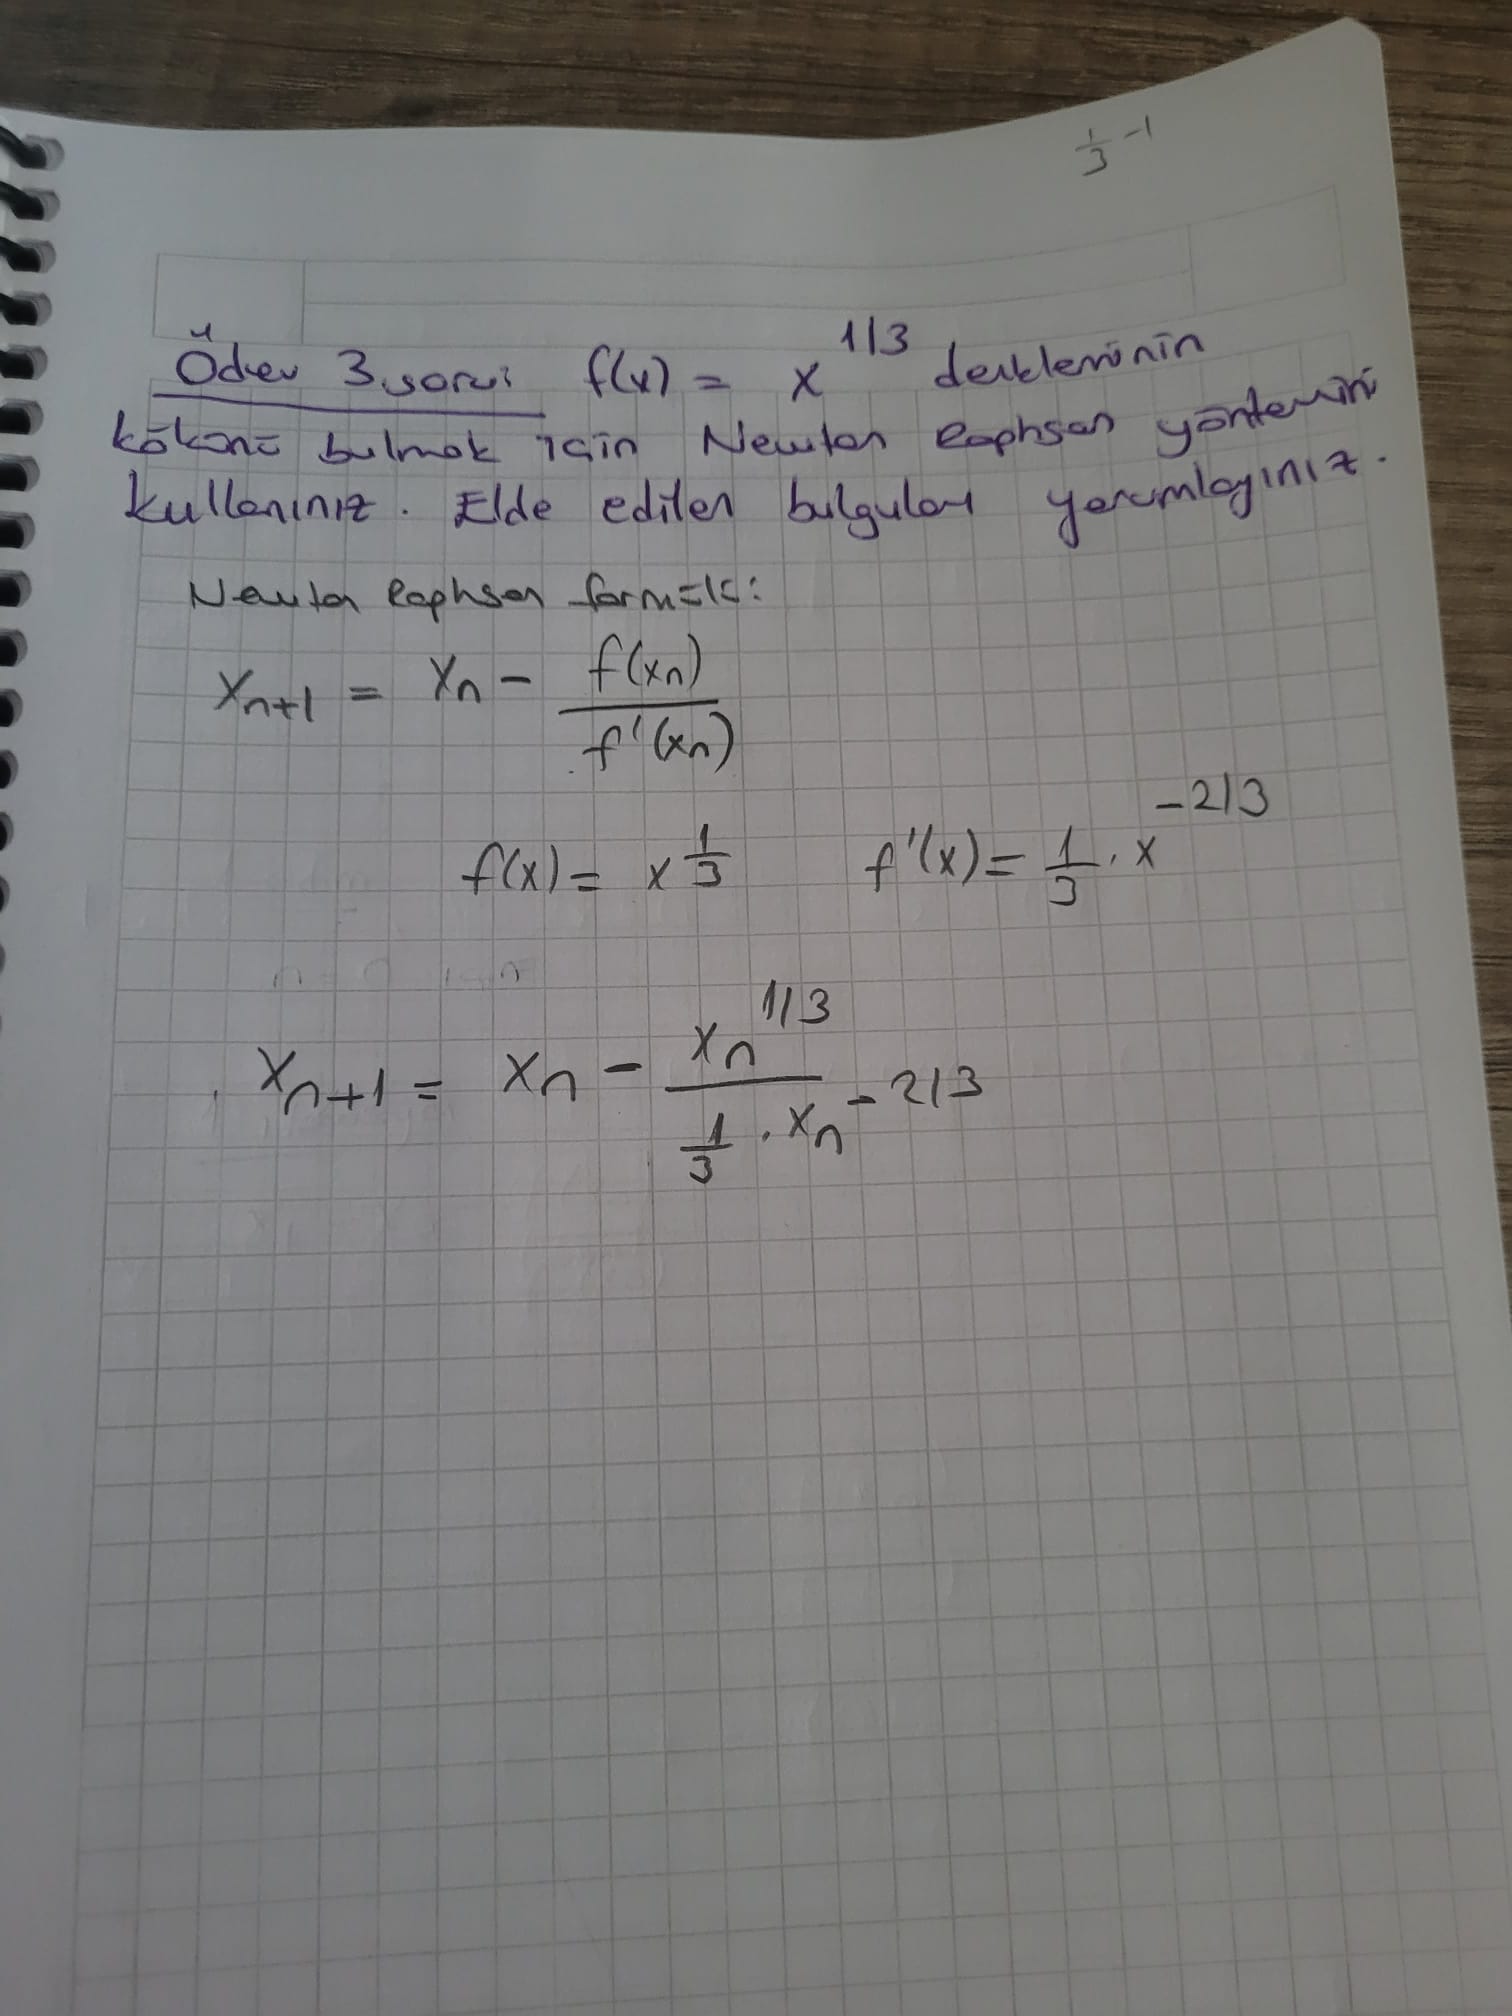 1/3 -1
Ödev 3.soru: f(x) = x^1/3 denkleminin
kökünü bulmak için Newton Raphson yöntemini
kullanınız. Elde edilen bulguları yorumlayınız.
Newton Raphson formülü:
x_n+1 = x_n - f(x_n) / f'(x_n)
f(x) = x^1/3 f'(x) = 1/3 . x^-2/3
x_n+1 = x_n - x_n^1/3 / 1/3 . x_n^-2/3